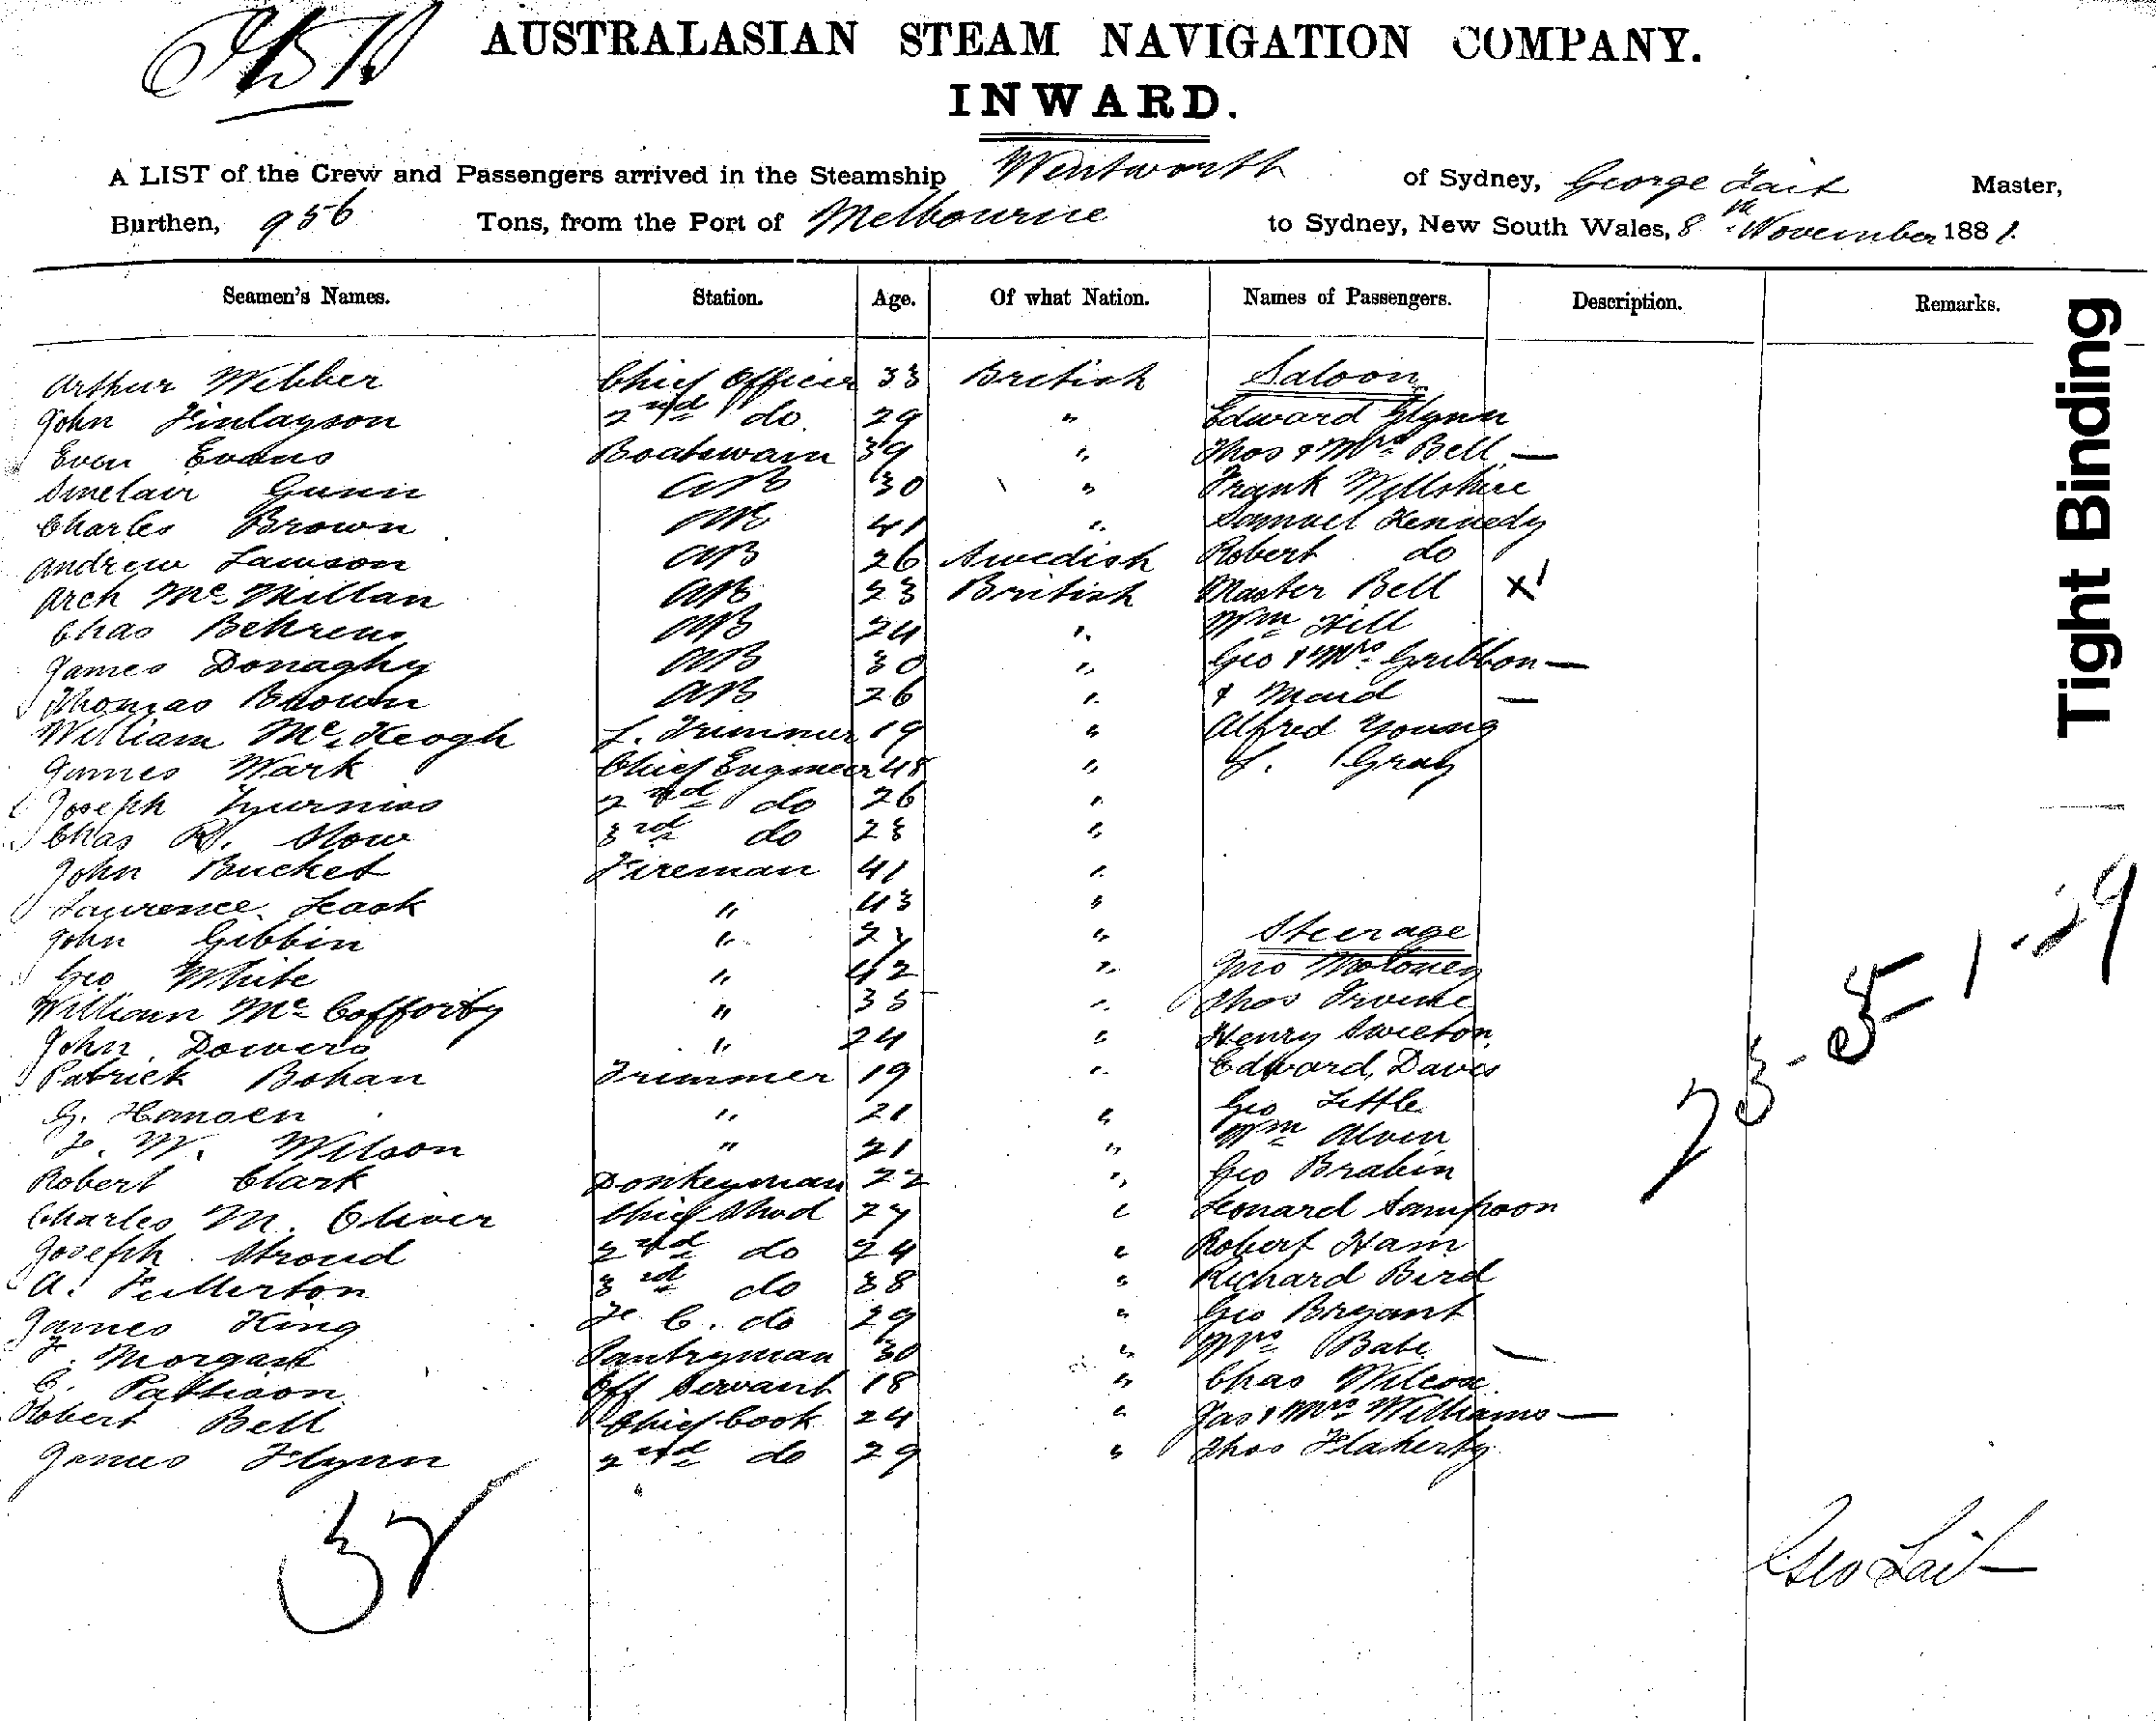 AUSTRALASIAN STEAM NAVIGATION COMPANY.
INWARD.
A LIST of the Crew and Passengers arrived in the Steamship Wentworth of Sydney, George Lait Master,
Burthen, 956 Tons, from the Port of Melbourne to Sydney, New South Wales, 8th November 1881.
Seamen's Names. Station. Age. Of what Nation. Names of Passengers. Description. Remarks.
Arthur Webber Chief Officer 33 British Saloon
John Finlayson 2nd do. 29 " Edward Glynn
Even Evans Boatswain 39 " Thos & Mrs Bell —
Sinclair Gunn AB 30 " Frank Willshire
Charles Brown AB 41 " Samuel Kennedy
Andrew Lawson AB 26 Swedish Robert do
Arch Mc Millan AB 23 British Master Bell x1
Chas Behrens AB 24 " Wm Hill
James Donaghy AB 30 " Geo & Mrs Gribbon —
Thomas Brown AB 26 " & Maid —
William Mc Keogh L. Trimmer 19 " Alfred Young
James Wark Chief Engineer 48 " Gray
Joseph 2nd do 26 "
Chas R. 3rd do 28 "
John Bucket Fireman 41 "
Lawrence Leask " 43 "
John Gibbin " 27 " Steerage
Geo White " 42 " Jno Moloney
William Mc Cafforty " 35 " Thos Irvine
John Dowers " 24 " Henry Sweeton
Patrick Bohan Trimmer 19 " Edward Davis
G. Hansen " 21 " Geo Little
F. W. Wilson " 21 " Wm Alvin
Robert Clark Donkeyman 22 " Geo Brabin
Charles M. Oliver Chief Stwd 27 " Leonard Sampson
Joseph Stroud 2nd do 24 " Robert Ham
A. Fullerton 3rd do 38 " Richard Bird
James King F. C. do 29 " Geo Bryant
F. Morgan Pantryman 30 " Mrs Bate —
C. Pattison Off Servant 18 " Chas Wilcox
Robert Bell Chief Cook 24 " Jas & Mrs Williams —
James Flynn 2nd do 29 " Thos Flaherty
32
Geo Lait
Tight Binding